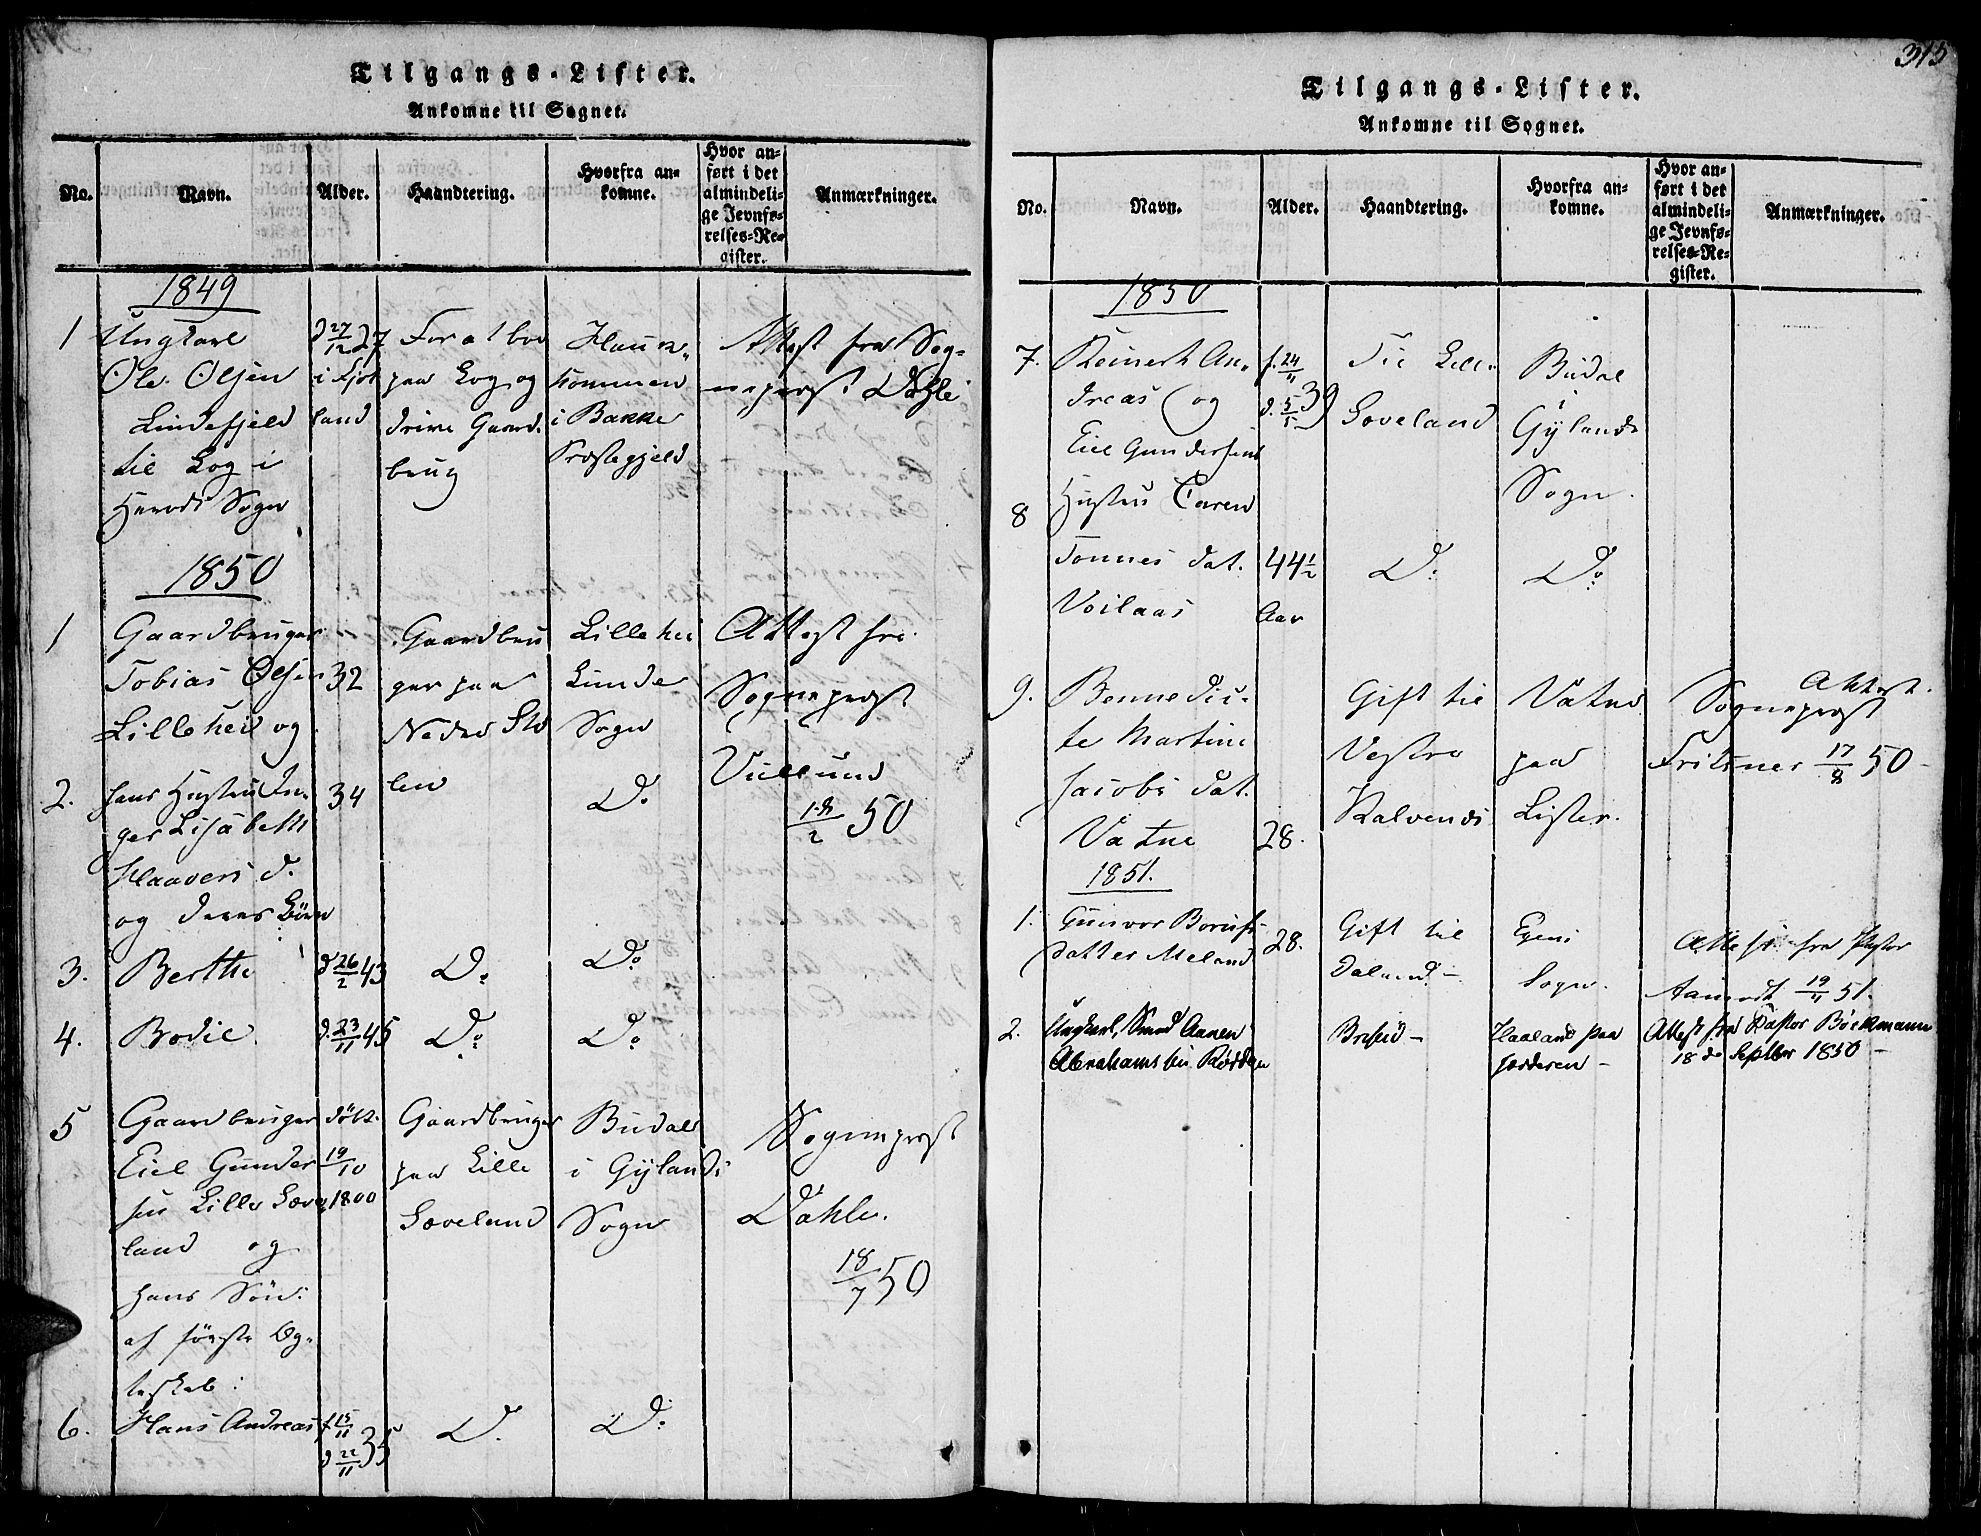 Tilgangs-Lister.
Ankomne til Sognet.
No.
Navn.
Alder.
Haandtering.
Hvorfra an=
komne.
Hvor an=
ført i det
almindeli=
ge Jevnfø=
relses=Re=
gister.
Anmærkninger.
1849
1
Ungkarl
Ole Olsen
Lindefjeld
til Log i
Herods Sogn
d 27/12 27
i Fjot
land
For at boe
paa Log og
drive Gaard.
brug
Haun
kommen
i Bakke
Præstegjeld
Attest fra Sog=
nepræst Dahle
1850
1
Gaardbruger
Tobias Olsen
Lilleheid og
32
Gaardbru
ger paa
Nedre Sto
len
Lillehei
Lunde
Sogn
Attest fra
Sognepræst
Vullum
18/2 50
2.
hans Hustru In=
ger Lisabeth
Haavers d.
og deres Börn
34
Do
3.
Berthe
d 26/2 43
Do
Do
4.
Bodil
d. 23/11 45
Do
Do
5
Gaardbruger
Eiel Gunder
sen Lille Love
land og
hans Sön:
af förste Æg=
teskab:
döbt
19/10
1800
Gaardbruger
paa Lille
Loveland
Budal
i Gylands
Sogn
Sognepræst
Dahle.
18/7 50
6.
Hans Andreas
f 15/11
d 22/11 35
Do
Do
315
Tilgangs-Lister.
Ankomne til Sognet.
No.
Navn.
Alder.
Haandtering.
Hvorfra an=
komne.
Hvor an=
ført i det
almindeli=
ge Jevnfø=
relses=Re=
gister.
Anmærkninger.
1850
7.
Reinert An=
dreas og
f. 24/4
d. 5/5 39
Til Lille
Loveland
Budal
Gylands
Sogn.
8
Eiel Gundersens
Hustru Caren
Tönnes dat.
Voilaas
44 1/2
Aar
Do
Do
9.
Bennedic=
te Martine
Jacobs dat.
Vatne
28.
Gift til
Vestre
Kalvends
Vatne
paa
Lister.
Attest.
Sognepræst
Fritzner 17/8 50
1851.
1.
Gunvor
datter Meland
28.
Gift til
Egens
Sogn.
Attest fra Pastor
Aamodt 19/4 51.
2.
Ungkarl, Smed Aanen
Abrahamssen
Haaland paa
Jædderen
Attest fra Pastor Böckmann
18de Septbr 1850